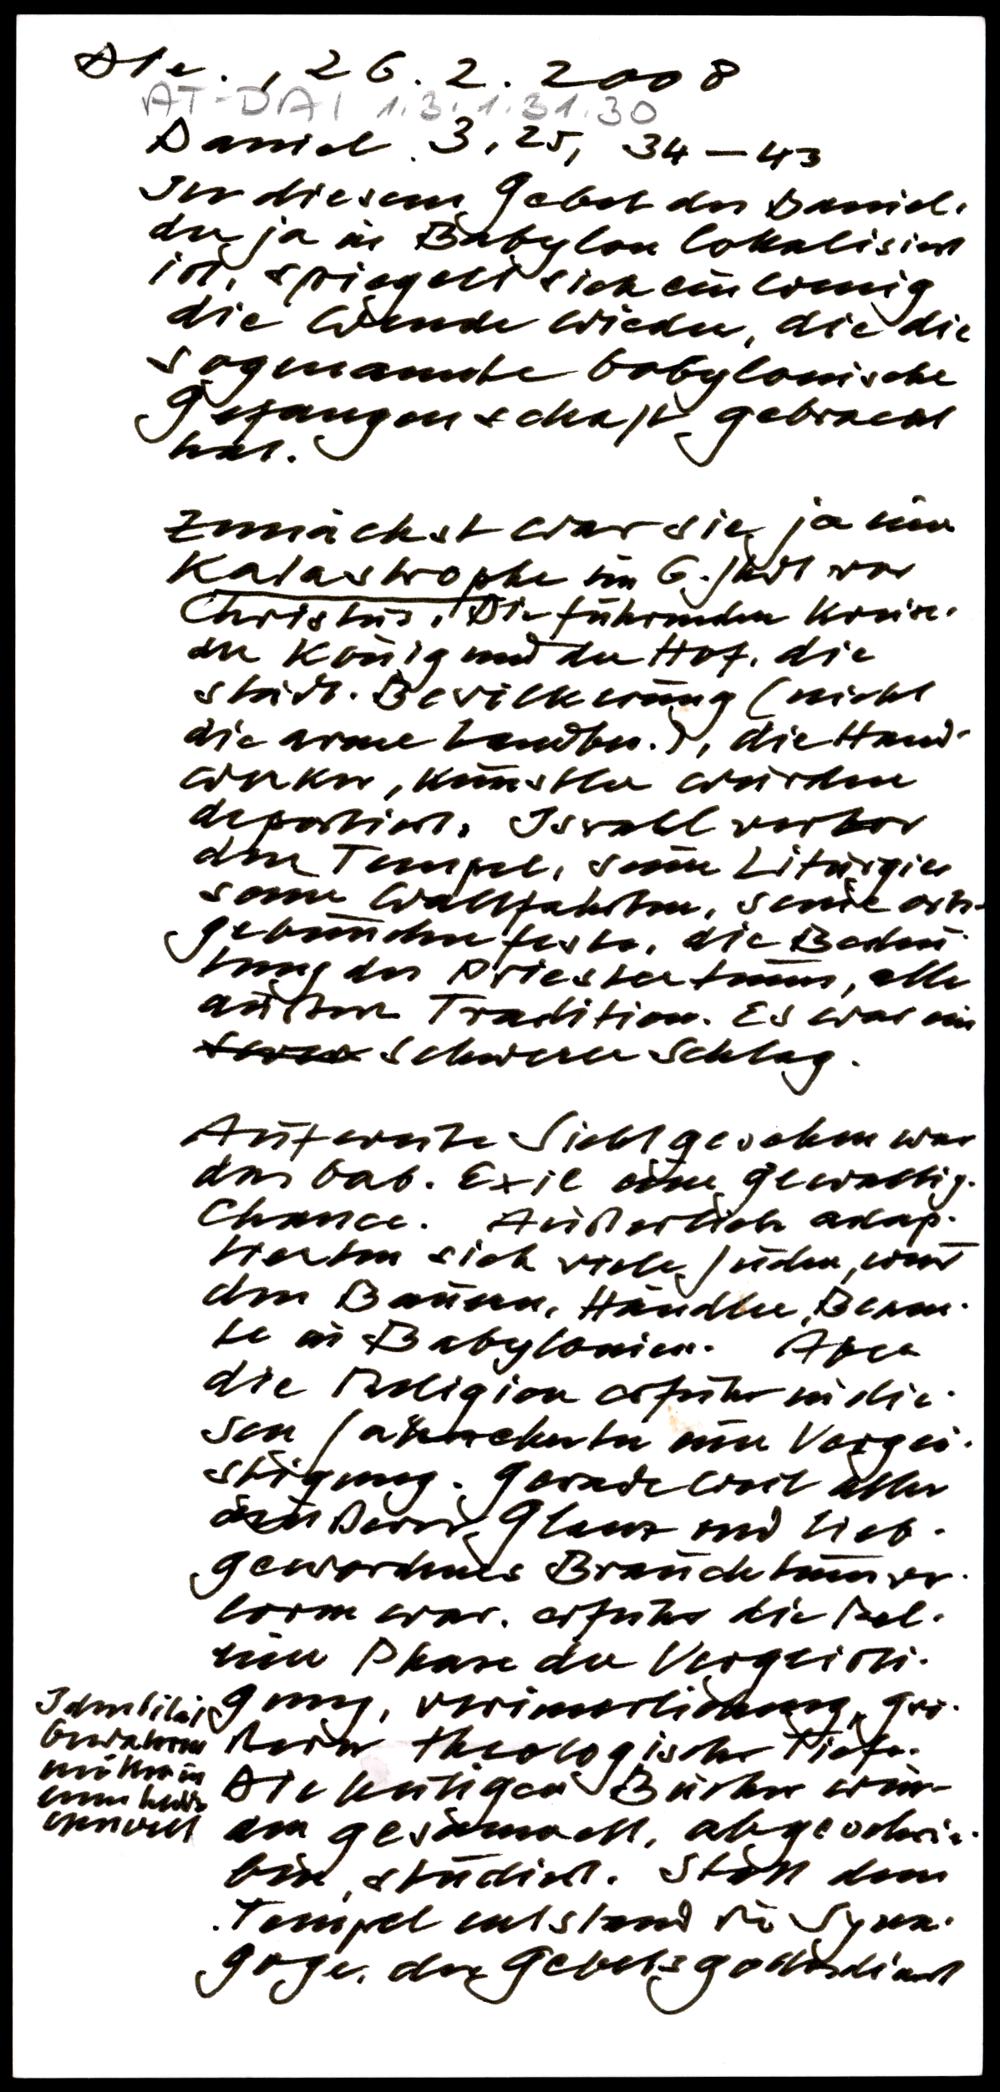 Die., 26.2.2008
AT-DAI 1.3.1.31.30
Daniel 3,25, 34-43
In diesem Gebet des Daniel,
der ja in Babylon lokalisiert
ist, spiegelt sich ein wenig
die Wende wieder, die die
sogenannte babylonische
Gefangenschaft gebracht
hat.
Zunächst war sie ja eine
Katastrophe im 6. Jhdt vor
Christus. Die führenden Kreise,
der König und der Hof, die
städt. Bevölkerung (nicht
die arme Landbev.), die Hand-
werker, Künstler wurden
deportiert. Israel verlor
den Tempel, seine Liturgie,
seine Wallfahrten, seine orts-
gebundenen Feste, die Bedeu-
tung des Priestertums, alle
äußere Tradition. Es war ein
schwerer Schlag.
Auf weite Sicht gesehen war
das bab. Exil eine gewaltige
Chance. Äußerlich adap-
tierten sich viele Juden, wur-
den Bauern, Händler, Beam-
te in Babylonien. Aber
die Religion erfuhr in die-
sen Jahrzehnten eine Vergei-
stigung. Gerade weil aller
äußerer Glanz und lieb-
gewordenes Brauchtum ver-
loren war, erfuhr die Rel.
eine Phase der Vergeisti-
gung, Verinnerlichung, grö-
ßerer theologischer Tiefe.
Identität
bewahren
mitten in
einer heidn.
Umwelt
Die heutigen Bücher wur-
den gesammelt, abgeschrie-
ben, studiert. Statt dem
Tempel entstand die Syna-
goge, der Gebetsgottesdienst